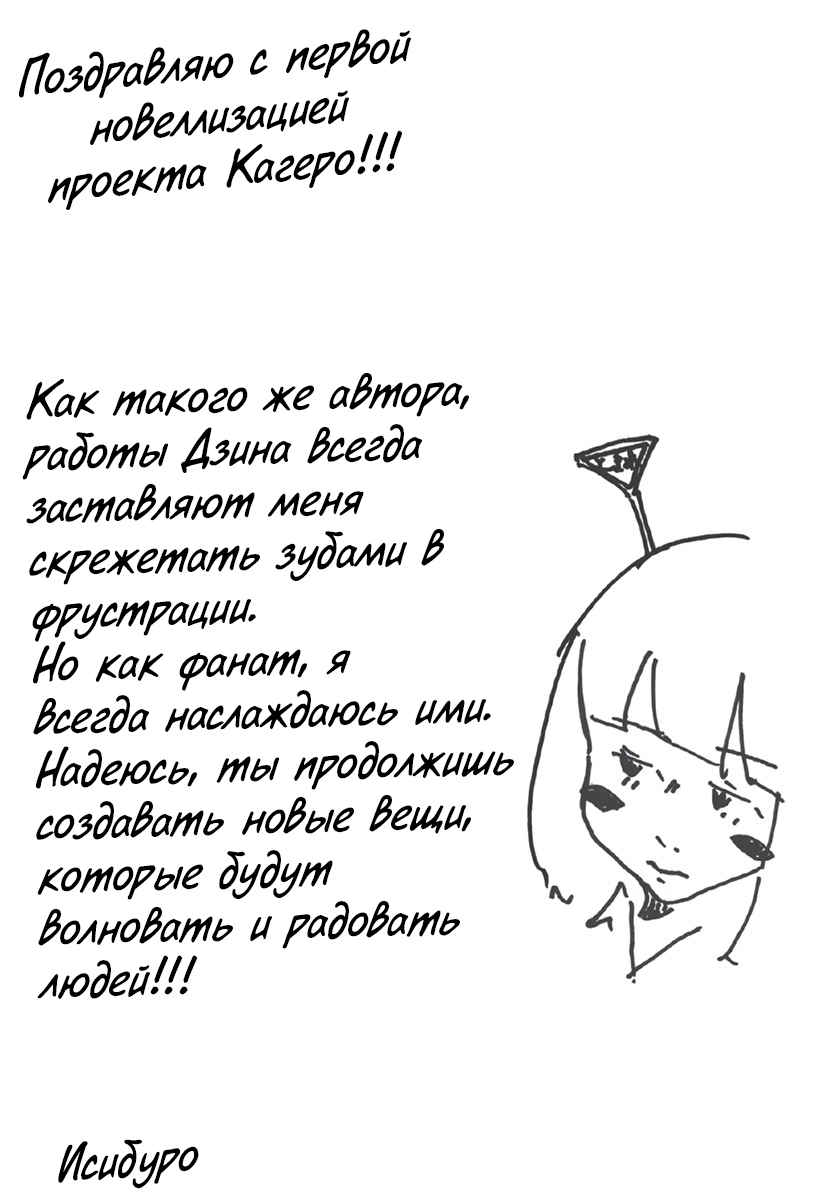 Поздравляю с первой
новеллизацией
проекта Кагеро!!!
Как такого же автора,
работы Дзина всегда
заставляют меня
скрежетать зубами в
фрустрации.
Но как фанат, я
всегда наслаждаюсь ими.
Надеюсь, ты продолжишь
создавать новые вещи,
которые будут
волновать и радовать
людей!!!
Исибуро